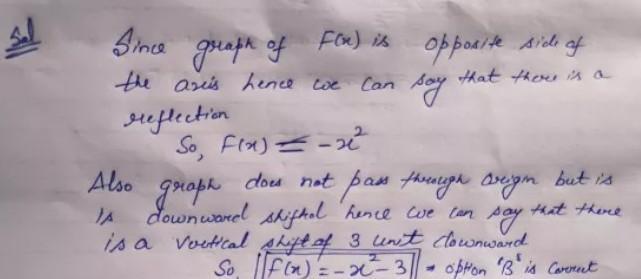 Sol
Since graph of F(x) is opposite side of
the axis hence we can say that there is a
reflection
So, F(x) = -x²
Also graph does not pass through origin but is
is downward shifted hence we can say that there
is a vertical shift of 3 unit downward
So, F(x) = -x² - 3 → option 'B' is correct